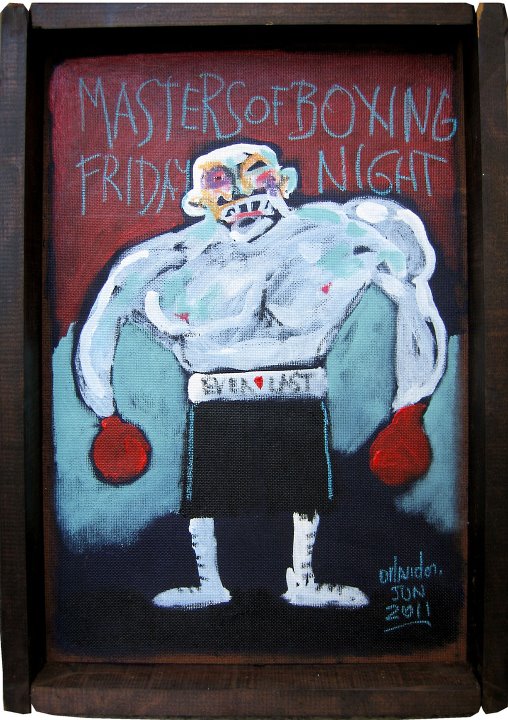 MASTERS OF BOXING
FRIDAY NIGHT
EVER LAST
JUN
2011